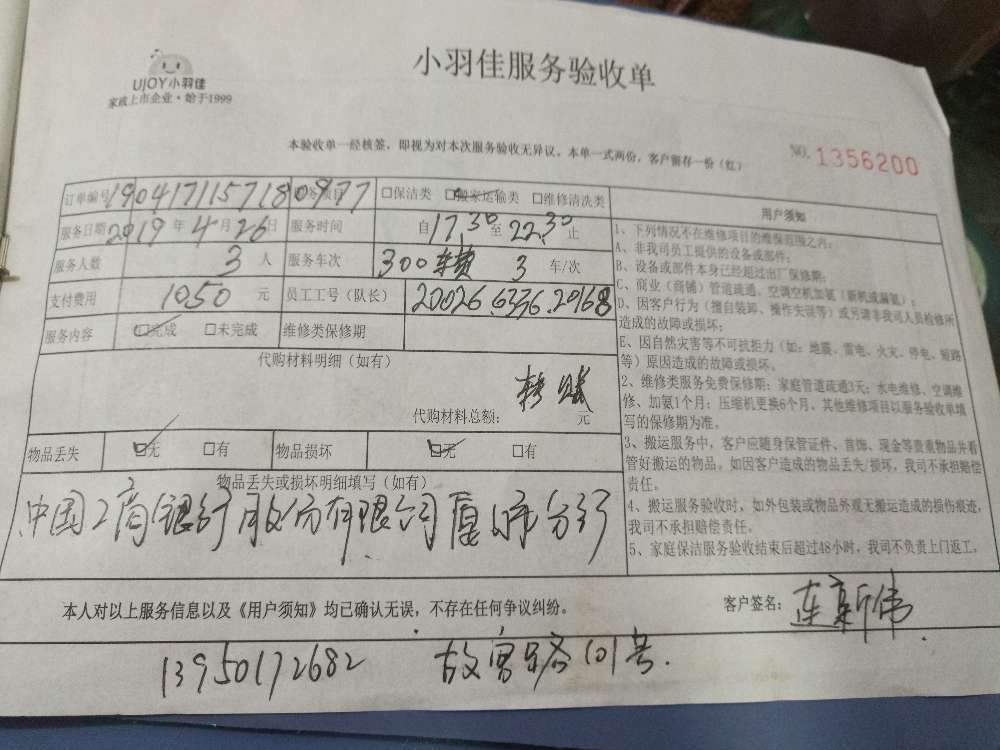 UJOY小羽佳
家政上市企业·始于1999
小羽佳服务验收单
本验收单一经核签，即视为对本次服务验收无异议。本单一式两份，客户留存一份（红）
NO. 1356200
订单编号 190417115718097 7 □保洁类 □搬家运输类 □维修清洗类
服务日期 2019 年 4 月 26 日 服务时间 自 17.30 至 22.30 止
服务人数 3 人 服务车次 300车费 3 车/次
支付费用 1050 元 员工工号（队长） 20026.6336.20168
服务内容 ☑完成 □未完成 维修类保修期
代购材料明细（如有）
转账
代购材料总额： 元
物品丢失 ☑无 □有 物品损坏 ☑无 □有
物品丢失或损坏明细填写（如有）
中国工商银行股份有限公司厦门市分行
用户须知
1、下列情况不在维修项目的维保范围之内：
A、非我司员工提供的设备或部件；
B、设备或部件本身已经超过出厂保修期；
C、商业（商铺）管道疏通、空调空机加氨（新机或漏氨）；
D、因客户行为（擅自装卸、操作失误等）或另请非我司人员检修所
造成的故障或损坏；
E、因自然灾害等不可抗拒力（如：地震、雷电、火灾、停电、短路
等）原因造成的故障或损坏。
2、维修类服务免费保修期：家庭管道疏通3天；水电维修、空调维
修、加氨1个月；压缩机更换6个月。其他维修项目以服务验收单填
写的保修期为准。
3、搬运服务中，客户应随身保管证件、首饰、现金等贵重物品并看
管好搬运的物品。如因客户造成的物品丢失/损坏，我司不承担赔偿
责任。
4、搬运服务验收时，如外包装或物品外观无搬运造成的损伤痕迹，
我司不承担赔偿责任。
5、家庭保洁服务验收结束后超过48小时，我司不负责上门返工。
本人对以上服务信息以及《用户须知》均已确认无误，不存在任何争议纠纷。 客户签名： 连新伟
13950172682 故宫路101号.